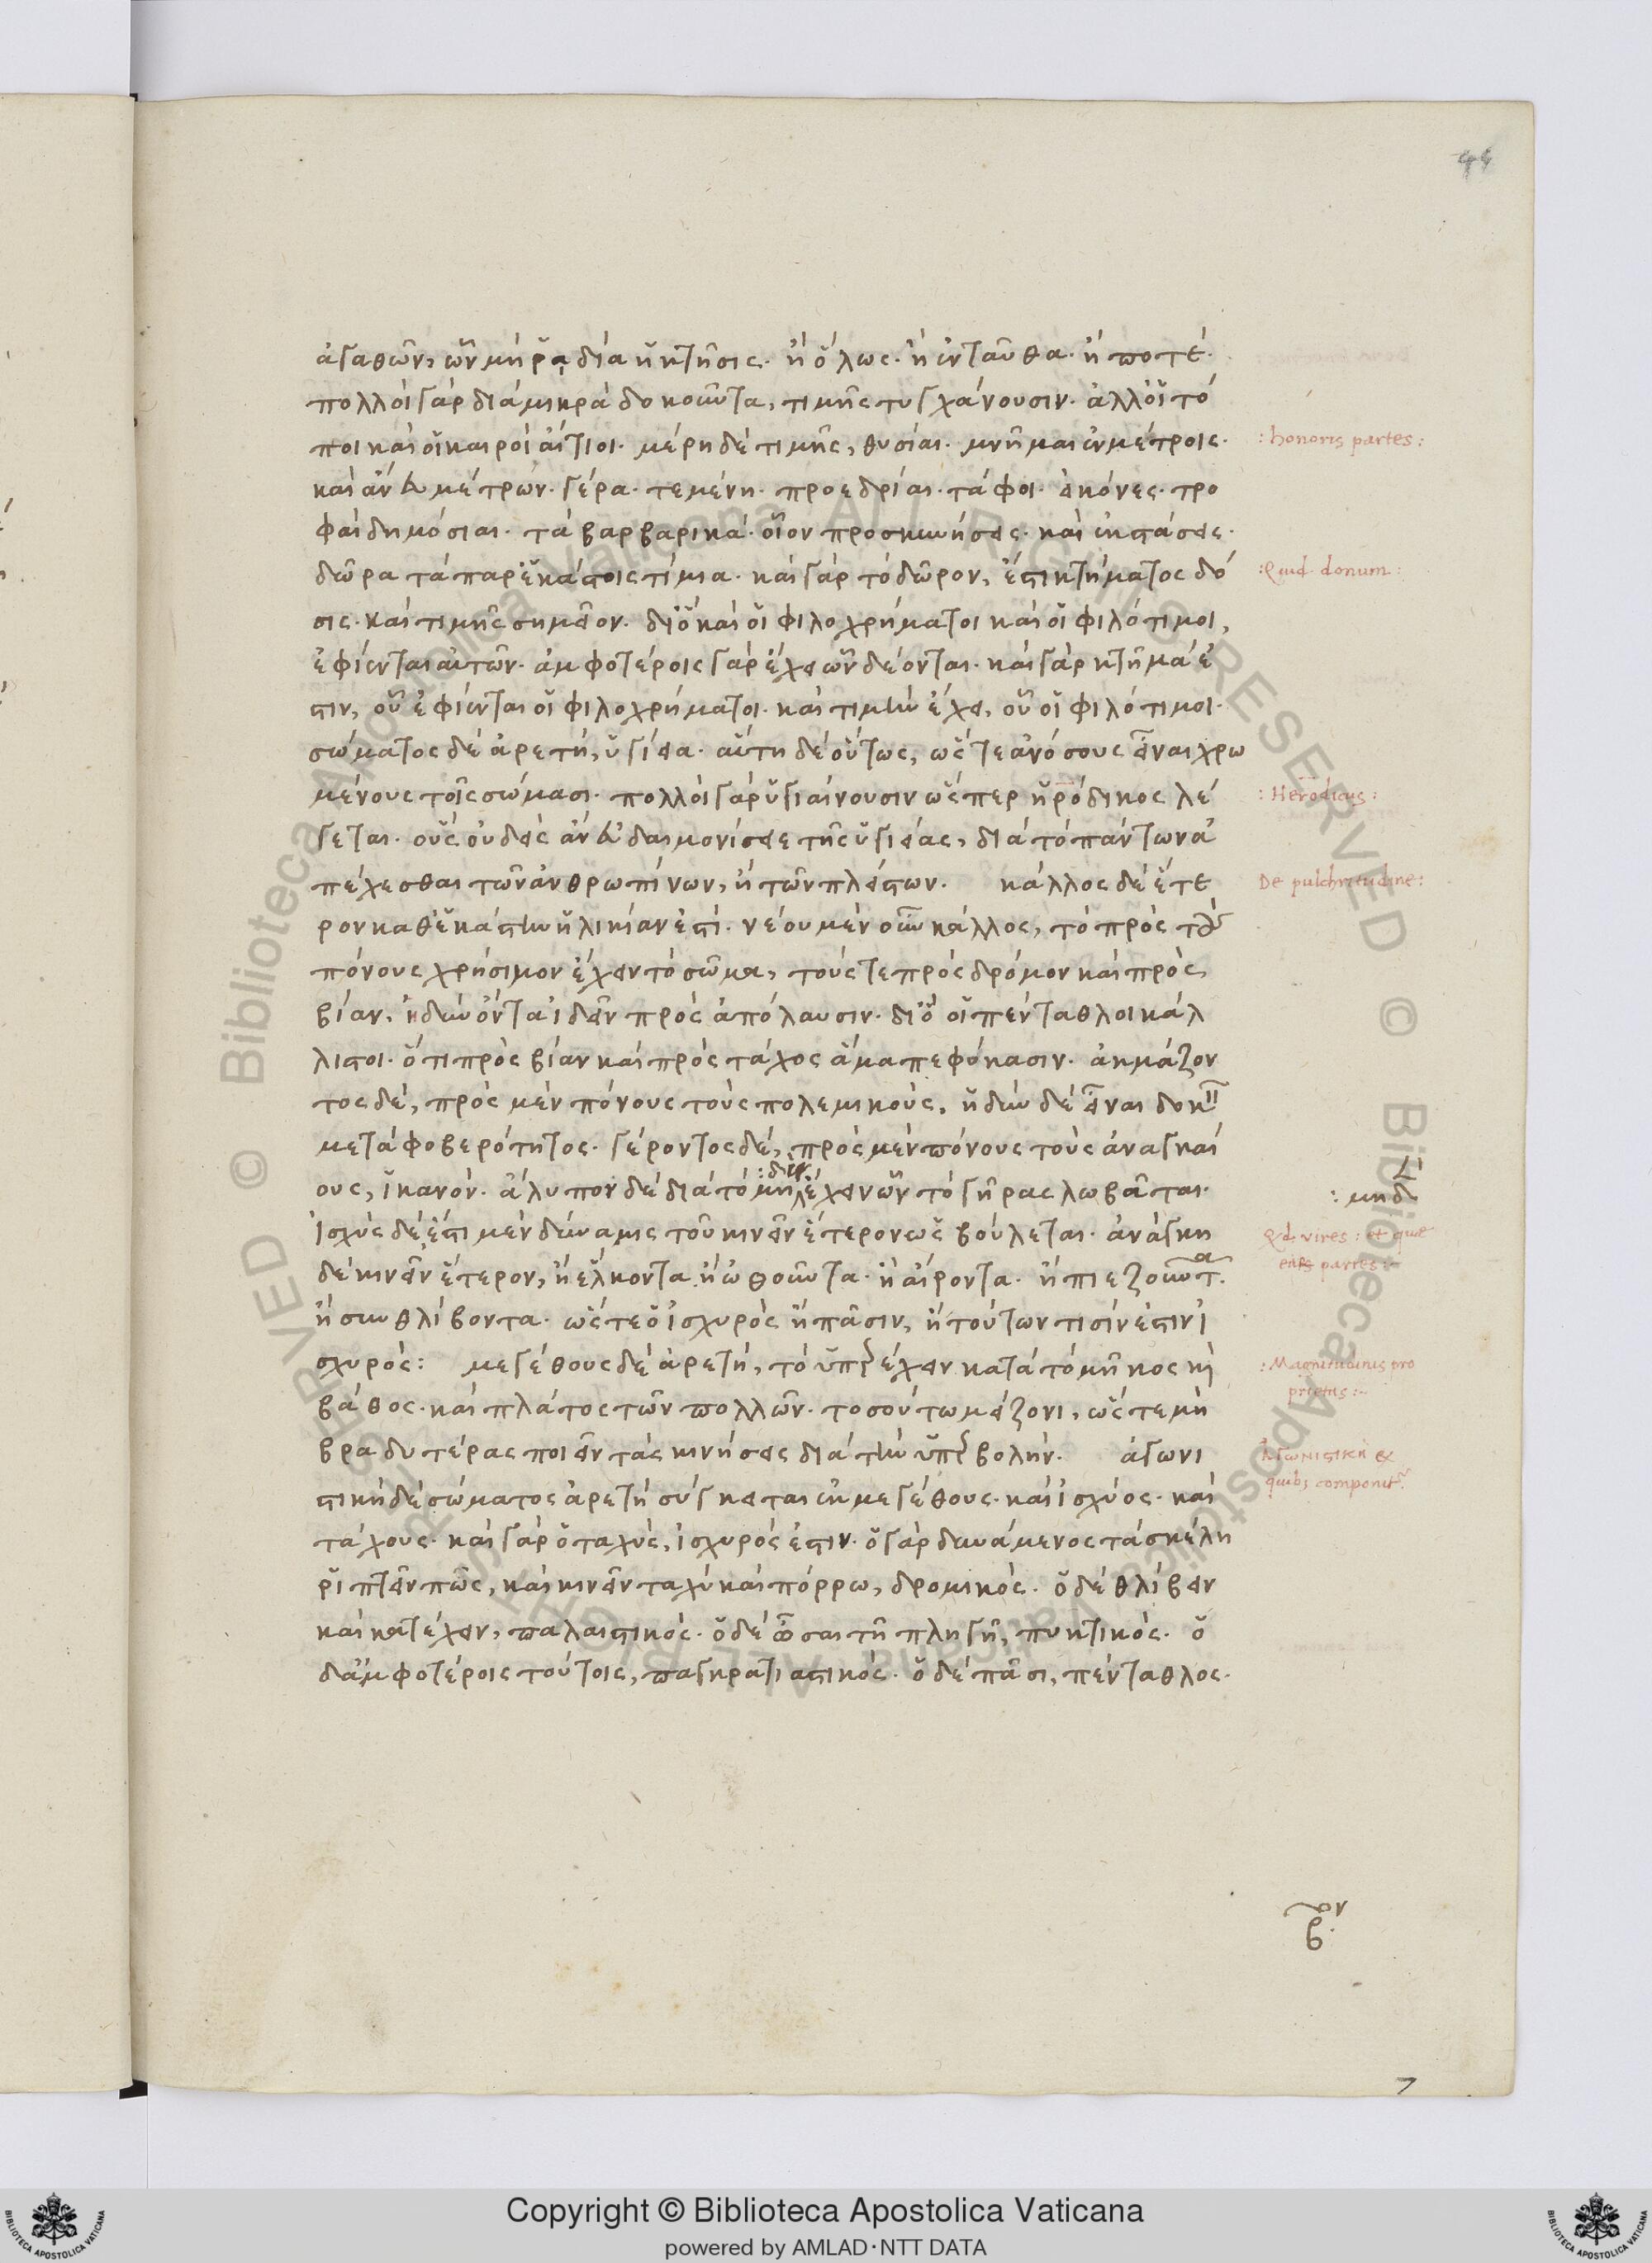 44
ἀγαθῶν, ὧν μὴ ῥᾳδία ἡ κτῆσις· ἢ ὅλως· ἢ ἐνταῦθα· ἢ ποτέ·
πολλοὶ γὰρ διὰ μικρὰ δοκοῦντα, τιμῆς τυγχάνουσιν· ἀλλ' οἱ τό
ποι καὶ οἱ καιροὶ αἴτιοι· μέρη δὲ τιμῆς, θυσίαι· μνῆμαι ἐν μέτροις·
: honoris partes :
καὶ ἄνευ μέτρων· γέρα· τεμένη· προεδρίαι· τάφοι· εἰκόνες· τρο
φαὶ δημόσιαι· τὰ βαρβαρικά· οἷον προσκυνήσεις· καὶ ἐκστάσεις·
δῶρα τὰ παρ' ἑκάστοις τίμια· καὶ γὰρ τὸ δῶρον, ἐστὶ κτήματος δό
: Quid donum :
σις· καὶ τιμῆς σημεῖον· διὸ καὶ οἱ φιλοχρήματοι καὶ οἱ φιλότιμοι,
ἐφίενται αὐτῶν· ἀμφοτέροις γὰρ ἔχει ὧν δέονται· καὶ γὰρ κτῆμά ἐ
στιν, οὗ ἐφίενται οἱ φιλοχρήματοι· καὶ τιμὴν ἔχει, οὗ οἱ φιλότιμοι·
σώματος δὲ ἀρετή, ὑγίεια· αὕτη δὲ οὕτως, ὥστε ἀνόσους εἶναι χρω
μένους τοῖς σώμασι· πολλοὶ γὰρ ὑγιαίνουσιν ὥσπερ ἡρόδικος λέ
: Herodicus :
γεται· οὓς οὐδεὶς ἂν εὐδαιμονίσειε τῆς ὑγιείας, διὰ τὸ πάντων ἀ
πέχεσθαι τῶν ἀνθρωπίνων, ἢ τῶν πλείστων· κάλλος δὲ ἕτε
De pulchritudine :
ρον καθ' ἑκάστην ἡλικίαν ἐστί· νέου μὲν οὖν κάλλος, τὸ πρὸς τοὺς
πόνους χρήσιμον ἔχειν τὸ σῶμα, τούς τε πρὸς δρόμον καὶ πρὸς
βίαν, ἡδὺν ὄντα ἰδεῖν πρὸς ἀπόλαυσιν· διὸ οἱ πένταθλοι κάλ
λιστοι· ὅτι πρὸς βίαν καὶ πρὸς τάχος ἅμα πεφύκασιν· ἀκμάζον
τος δέ, πρὸς μὲν πόνους τοὺς πολεμικούς, ἡδὺν δὲ εἶναι δοκεῖν
μετὰ φοβερότητος· γέροντος δέ, πρὸς μὲν πόνους τοὺς ἀναγκαί
ους, ἱκανόν· ἄλυπον δὲ διὰ τὸ μὴ ἔχειν ὧν τὸ γῆρας λωβᾶται·
ἰσχὺς δέ ἐστι μὲν δύναμις τοῦ κινεῖν ἕτερον ὡς βούλεται· ἀνάγκη
Qd vires : et quae
eius partes :
δὲ κινεῖν ἕτερον, ἢ ἕλκοντα· ἢ ὠθοῦντα· ἢ αἴροντα· ἢ πιεζοῦντα·
ἢ συνθλίβοντα· ὥστε ὁ ἰσχυρὸς ἢ πᾶσιν, ἢ τούτων τισίν ἐστιν ἰ
σχυρός: μεγέθους δὲ ἀρετή, τὸ ὑπερέχειν κατὰ τὸ μῆκος καὶ
: Magnitudinis pro
prietas :
βάθος· καὶ πλάτος τῶν πολλῶν· τοσούτω μείζονι, ὥστε μὴ
βραδυτέρας ποιεῖν τὰς κινήσεις διὰ τὴν ὑπερβολήν· ἀγωνι
ἀγωνιστικὴ ex
quibus componitur
στικὴ δὲ σώματος ἀρετὴ σύγκειται ἐκ μεγέθους· καὶ ἰσχύος· καὶ
τάχους· καὶ γὰρ ὁ ταχύς, ἰσχυρός ἐστιν· ὁ γὰρ δυνάμενος τὰ σκέλη
ῥιπτεῖν πῶς, καὶ κινεῖν ταχὺ καὶ πόρρω, δρομικός· ὁ δὲ θλίβειν
καὶ κατέχειν, παλαιστικός· ὁ δὲ ὦσαι τῇ πληγῇ, πυκτικός· ὁ
δ' ἀμφοτέροις τούτοις, παγκρατιαστικός· ὁ δὲ πᾶσι, πένταθλος·
Copyright © Biblioteca Apostolica Vaticana
powered by AMLAD·NTT DATA